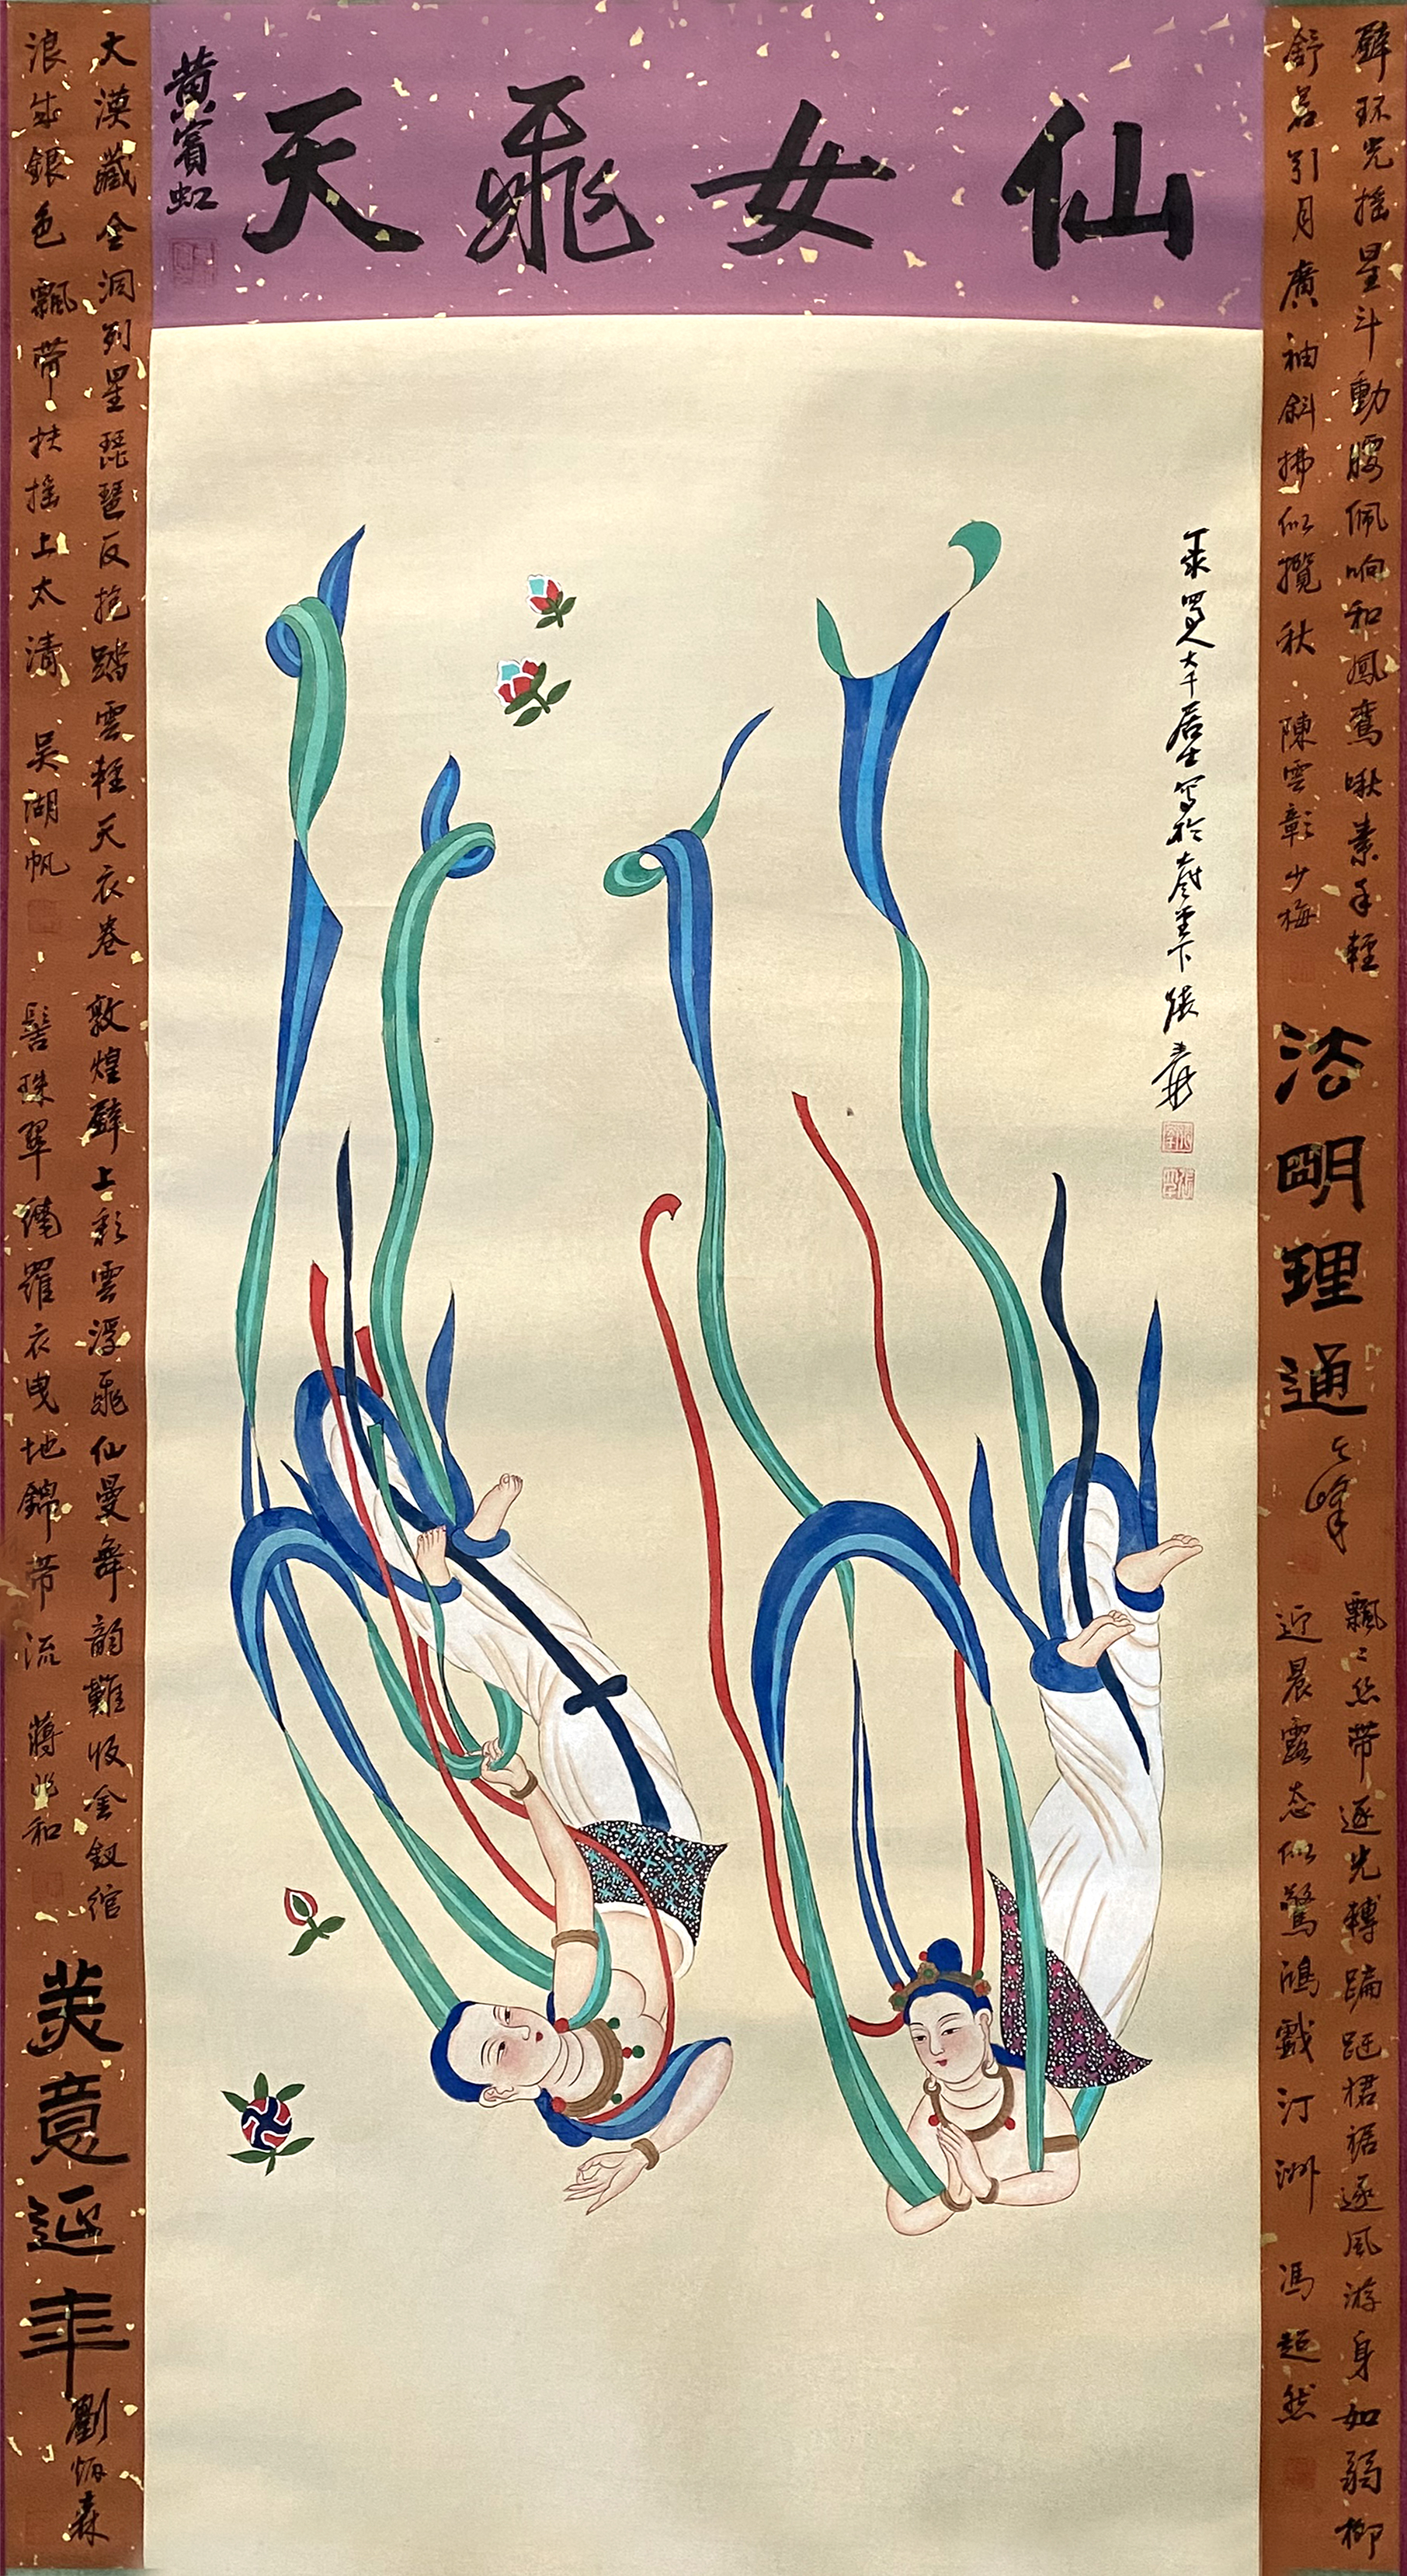 仙女飛天
黃賓虹
臂环光摇星斗動腰佩响和鳳鸾啾素手輕
舒若引月廣袖斜拂似攬秋 陳雲彰少梅
法明理通
飄〻丝带逐光轉蹁跹裙裾逐風游身如弱柳
近晨露态似驚鴻戲汀洲 馮超然
蜀人大千居士寫於堂下張爰
大漠藏金洞列星琵琶反抱踏雲輕天衣卷
浪生銀色飄带扶摇上太清 吴湖帆
敦煌壁上彩雲浮飛仙曼舞韵難收金釵绾
髻珠翠繞羅衣曳地錦带流 蔣兆和
美意延年
劉炳森